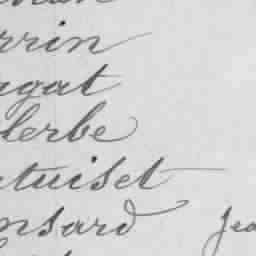 rrin
gat
lerbe
tuiset
nsard Jea